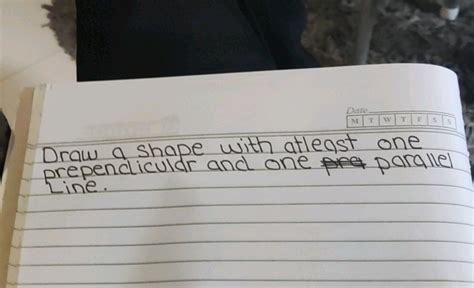 Date
M T W T F S S
Draw a shape with atleast one
prependiculdr and one pra parallel
Line.